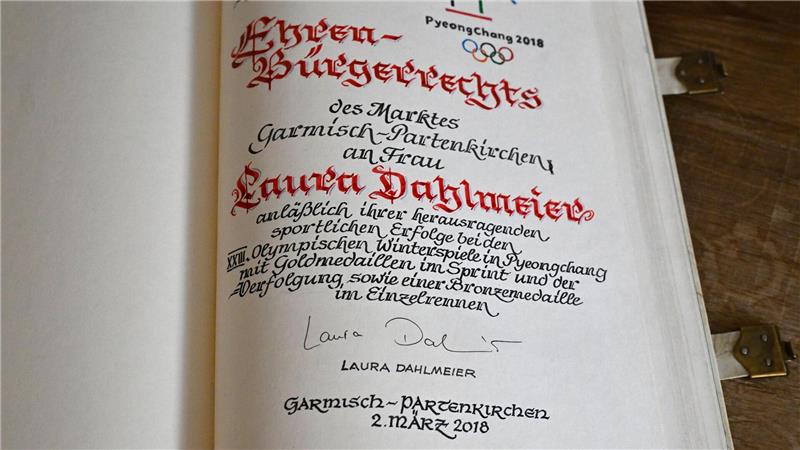 PyeongChang 2018
Ehren-
Bürgerrechts
des Marktes
Garmisch-Partenkirchen,
an Frau
Laura Dahlmeier
anläßlich ihrer herausragenden
sportlichen Erfolge bei den
XXIII. Olympischen Winterspiele in Pyeongchang
mit Goldmedaillen im Sprint und der
Verfolgung, sowie einer Bronzemedaille
im Einzelrennen
Laura Dahlmeier
LAURA DAHLMEIER
GARMISCH-PARTENKIRCHEN
2. MÄRZ 2018